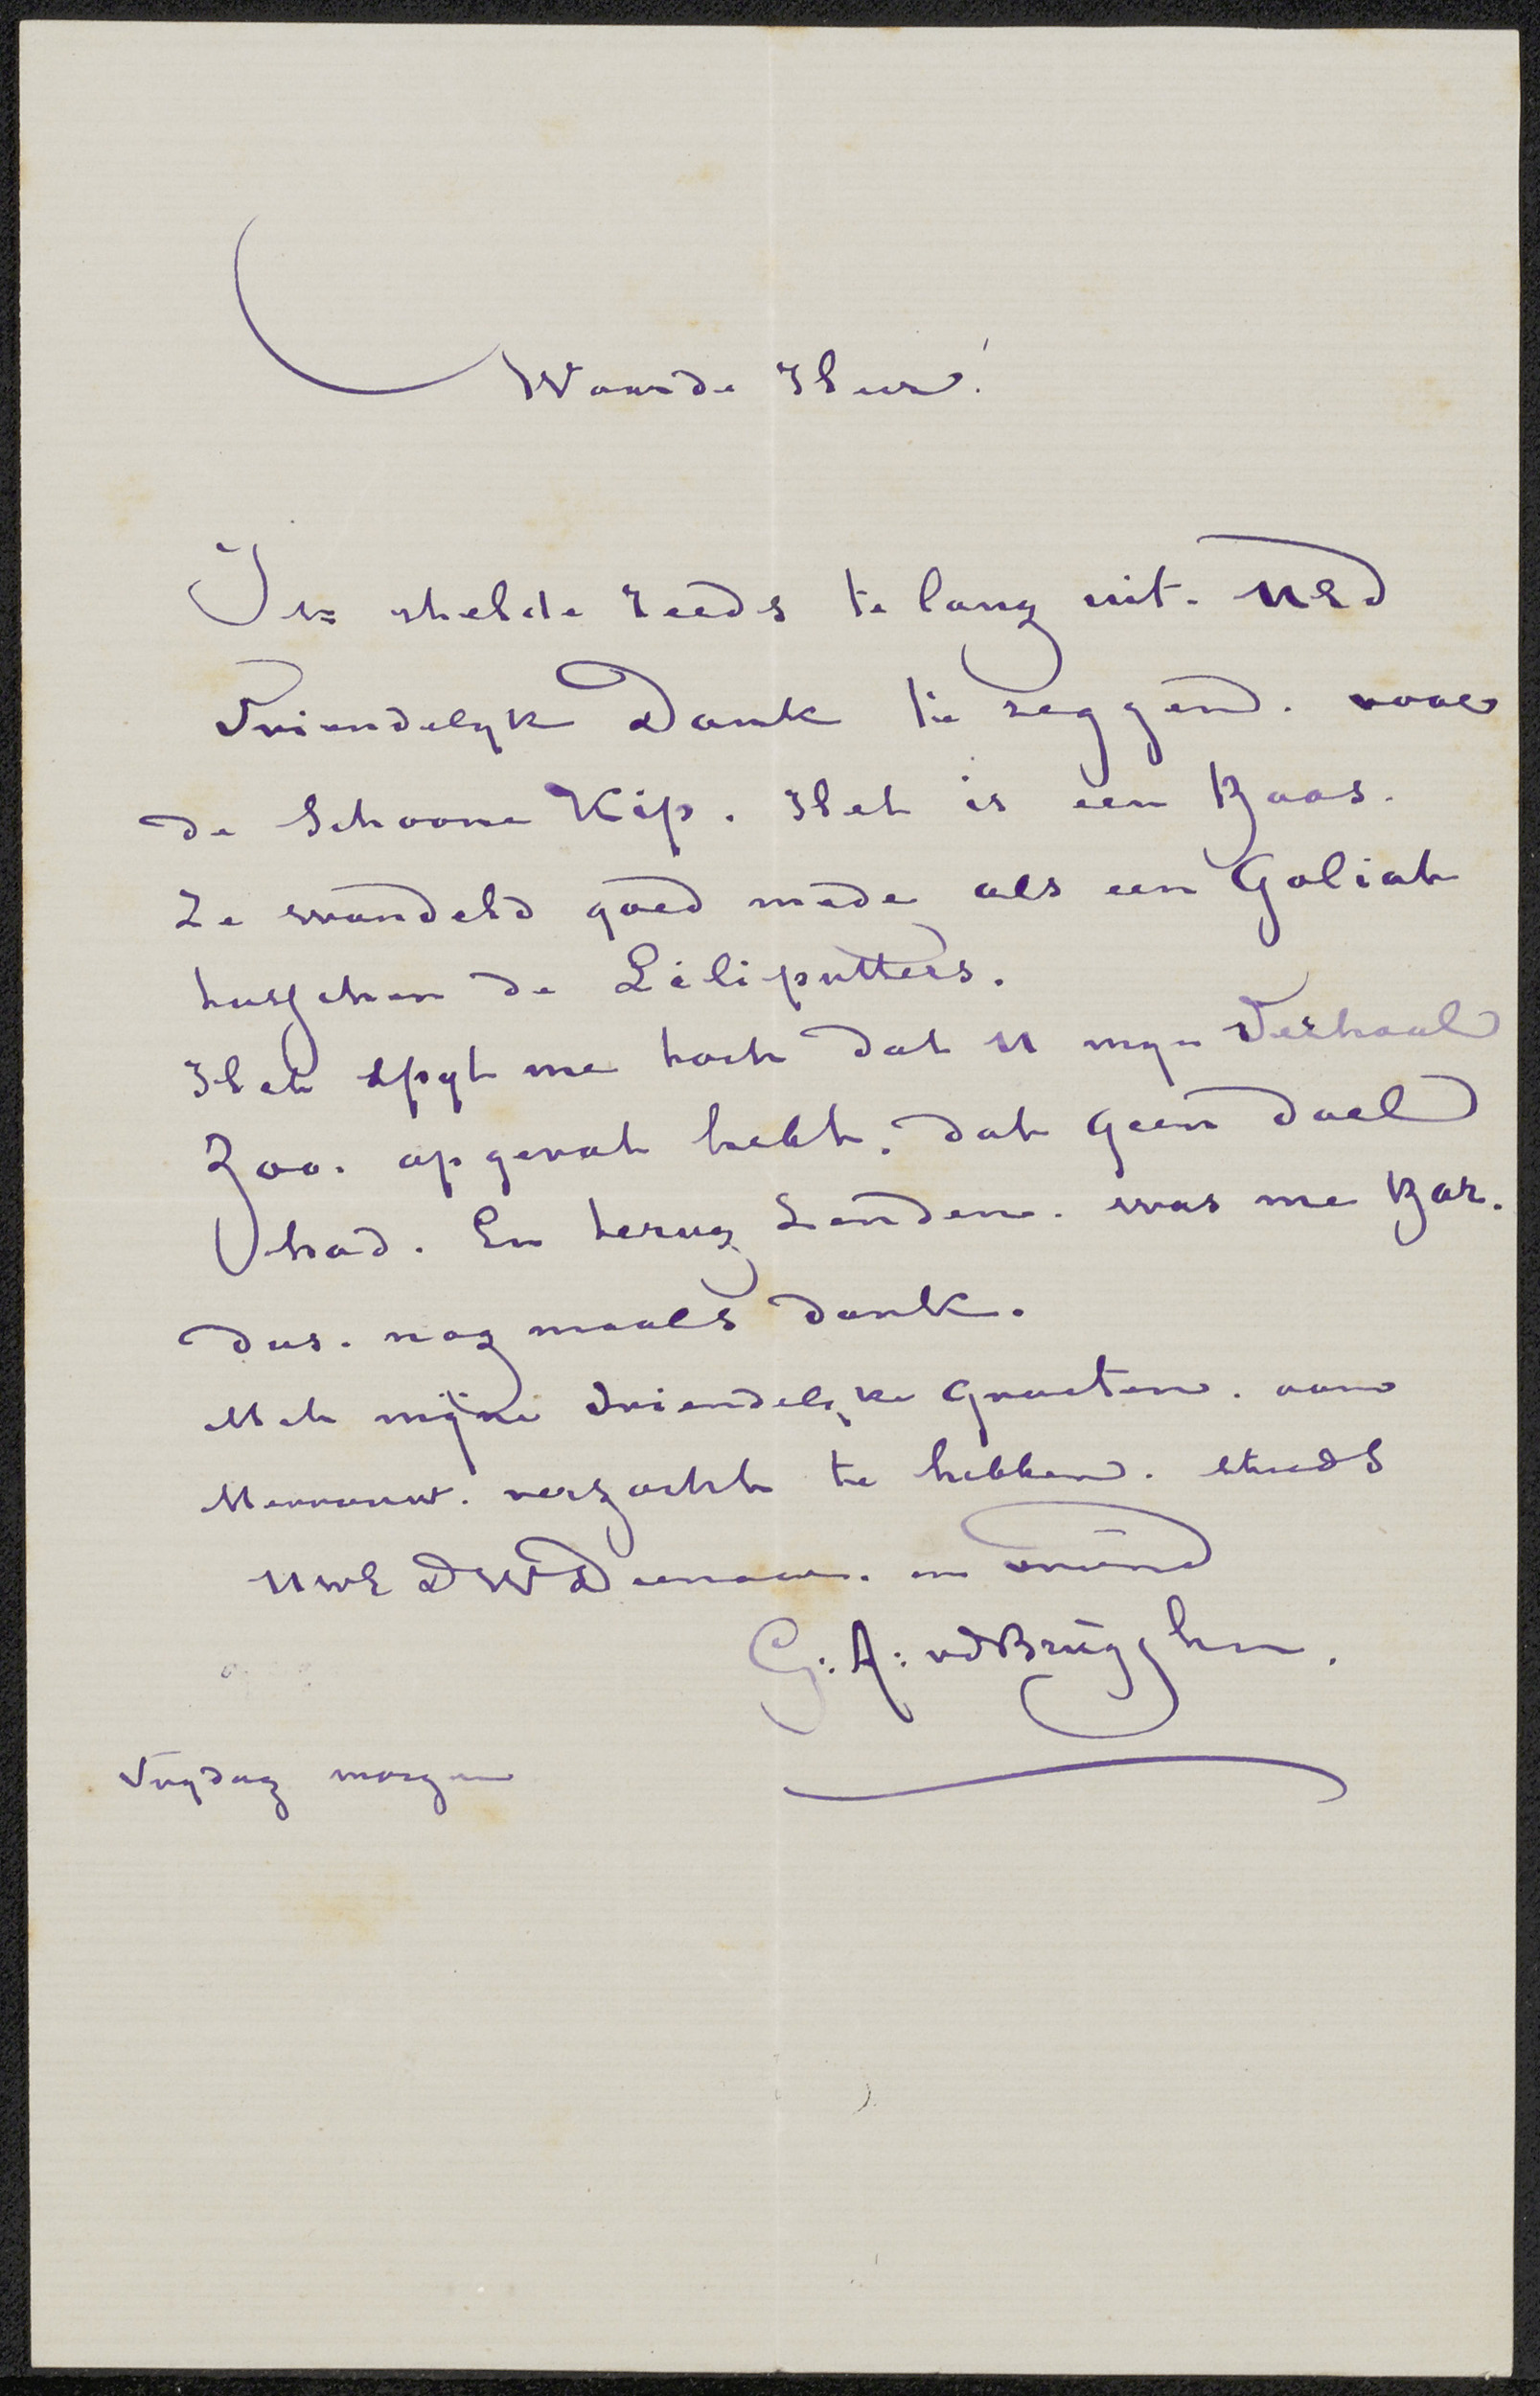 Waarde Heer!
Ik stelde reeds te lang uit. UEd
Vriendelyk Dank te zeggen. voor
de Schoone Kip. Het is een Baas.
Ze wandeld goed mede als een Goliat
tusschen de Liliputters.
Het spyt me toch dat U myn Verhaal
Zoo. opgevat hebt. dat geen doel
had. En terug Zenden. was me Bar.
dus. nog maals dank.
Met mijne Vriendelyke Groeten. aan
Mevrouw. verzocht te hebben. steeds
UwE DWDienaar. en vriend
G: A: vdBrugghen.
Vrydag morgen